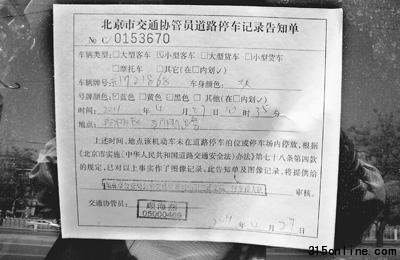 北京市交通协管员道路停车记录告知单
No C/0153670
车辆类型:□大型客车 ☑小型客车 □大型货车 □小型货车
□摩托车 □其它(在□内划√)
车辆牌号: 车身颜色:
号牌颜色:☑蓝色 □黄色 □黑色 □其他(在□内划√)
时间:2011年4月27日10时35分
地点:
上述时间、地点该机动车未在道路停车泊位或停车场内停放,根据
《北京市实施〈中华人民共和国道路交通安全法〉办法》第七十八条第四款
的规定,已对以上事实作了图像记录。此告知单及图像记录,将提供给
审核。
交通协管员:
05000469
2011年4月27日
315online.com